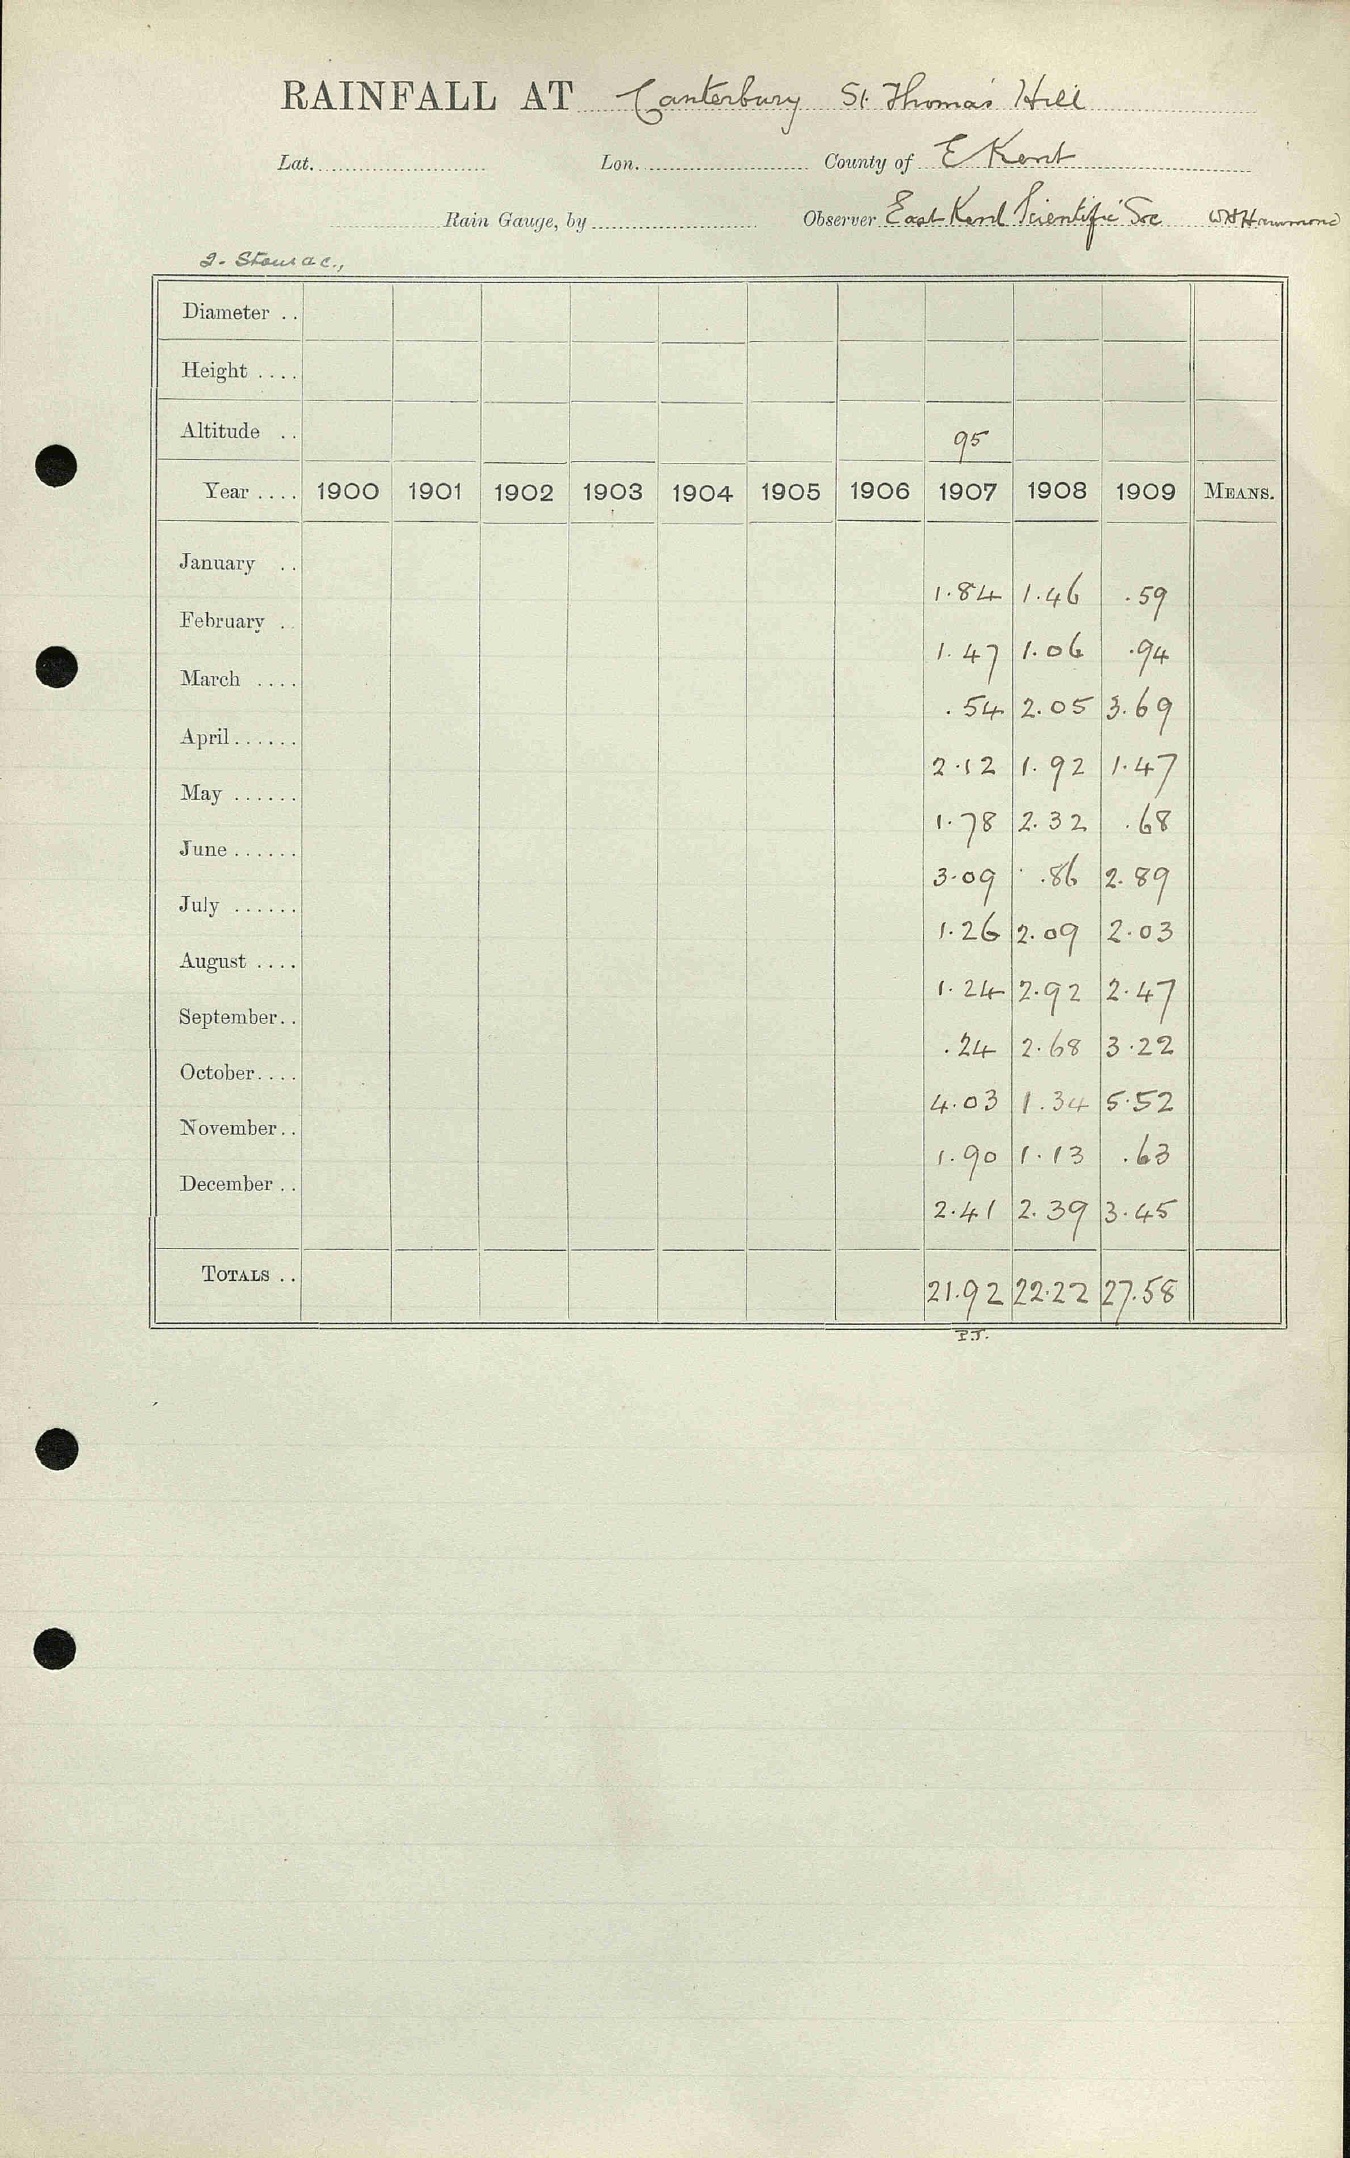 RAINFALL AT Canterbury St. Thomas' Hill
Lat. Lon. County of E Kent
Rain Gauge, by Observer East Kent Scientific Soc W H Hammond
Diameter ..
Height ....
Altitude .. 95
Year .... 1900 1901 1902 1903 1904 1905 1906 1907 1908 1909 MEANS.
January .. 1.84 1.46 .59
February .. 1.47 1.06 .94
March .... .54 2.05 3.69
April...... 2.12 1.92 1.47
May ...... 1.78 2.32 .68
June ...... 3.09 .86 2.89
July ...... 1.26 2.09 2.03
August .... 1.24 2.92 2.47
September.. .24 2.68 3.22
October.... 4.03 1.34 5.52
November.. 1.90 1.13 .63
December .. 2.41 2.39 3.45
TOTALS .. 21.92 22.22 27.58
P.J.